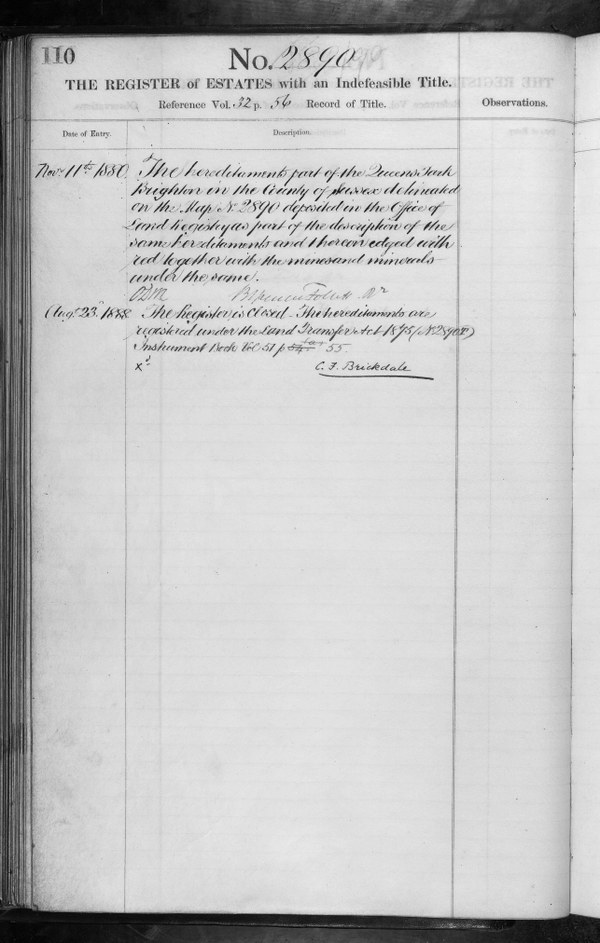 110
No. 2890
THE REGISTER of ESTATES with an Indefeasible Title.
Reference Vol. 32 p. 56 Record of Title.
Observations.
Date of Entry.
Description.
Novr 11th 1880
The hereditaments part of the Queens Park
Brighton in the County of Sussex delineated
on the Map No 2890 deposited in the Office of
Land Registry as part of the description of the
same hereditaments and thereon edged with
red together with the mines and minerals
under the same.
Augt 23rd 1888
The Register is closed. The hereditaments are
registered under the Land Transfer Act 1875 (No 2890
Instrument Book Vol 51 p 55.
xd
C. F. Brickdale